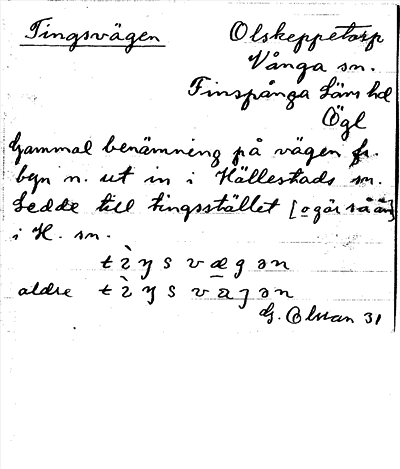 Tingsvägen Olskeppetorp
Vånga sn.
Finspånga läns hd
Ögl
Gammal benämning på vägen fr.
byn n. ut in i Hällestads sn.
Ledde till tingsstället [o går så än]
i H. sn.
tìŋs vægən
äldre tìŋs vāȷən
G. Olsson 31